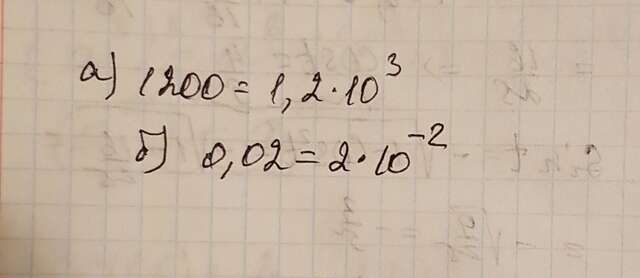 а) 1200 = 1,2·10³
б) 0,02 = 2·10⁻²